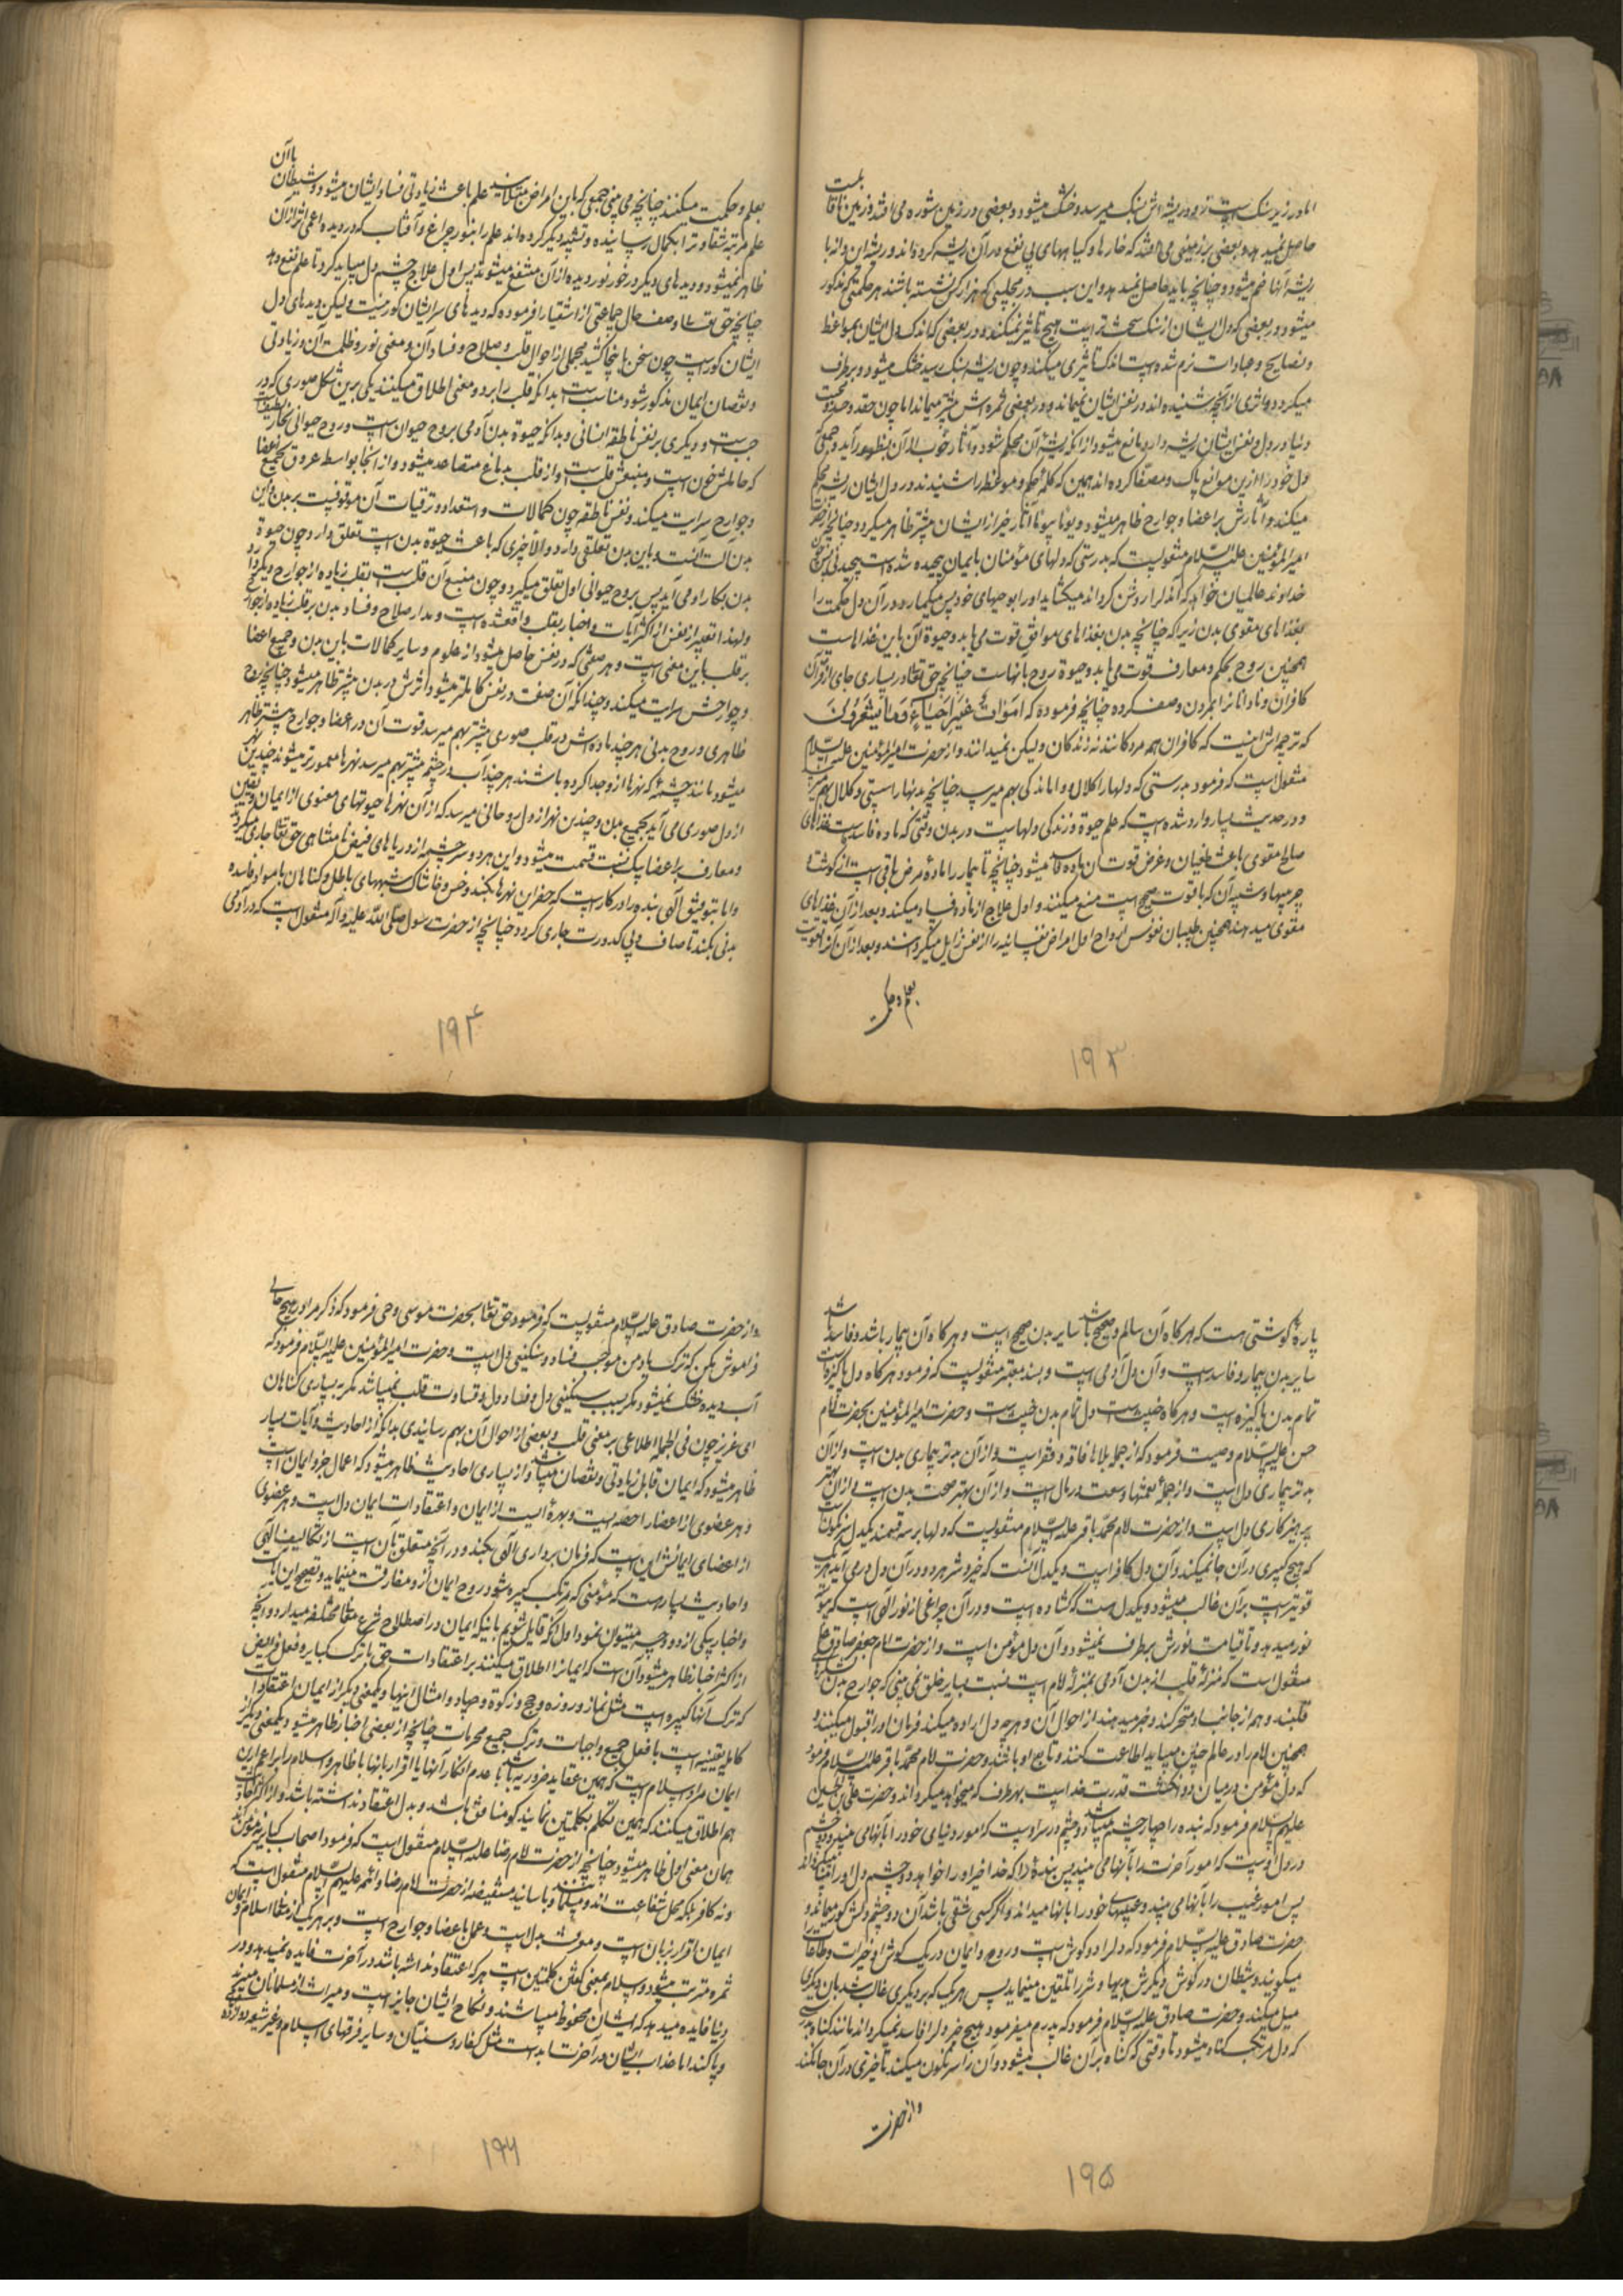 اما در زیر سنگ است زود ریشه اش بسنگ میرسد و خشک میشود و بعضی در زمین شوره می افتد و زمین را قابلیت
حاصل نمیدهد و بعضی بر زمینی می افتد که خارها و گیاههای بی نفع در آن ریشه کرده اند و ریشه این دانه با
ریشه آنها ضم میشود و چنانچه باید حاصل نمیدهد و این سبب در مجلسی که هزار کس نشسته باشند هر حکمتی مذکور
میشود در بعضی که دل ایشان از سنگ سخت تر است هیچ تأثیر نمیکند و در بعضی که اندک دل ایشان بمواعظ
و نصایح و عبادات نرم شده است اندک تاثیری میکند و چون ریشه بسنگ رسید خشک میشود و برطرف
میگردد و اثری از آنچه شنیده اند در نفس ایشان نمیماند و در بعضی ثمره اش بیشتر میماند اما چون حقد و حسد و محبت
دنیا در دل و نفس ایشان ریشه دارد مانع میشود از آنکه ریشه آن محکم شود و آثار خوب از آن بظهور آید و جمعی که
دل خود را از این موانع پاک و مصفا کرده اند همین که کلمه حکم و موعظه را شنیدند در دل ایشان ریشه محکم
میکند و آثارش بر اعضا و جوارح ظاهر میشود و یوما فیوما آثار خیر از ایشان بیشتر ظاهر میگردد چنانچه از حضرت
امیر المؤمنین علیه السلام منقولست که بدرستی که دلهای مؤمنان بایمان پیچیده شده است پیچیدنی پس چون
خداوند عالمیان خواهد که آن دل را روشن گرداند میگشاید او را بوحیهای خود پس میکارد در آن دل حکمت را
بغذاهای مقوی بدن زیرا که چنانچه بدن بغذاهای موافق قوت می یابد و حیوة آن باین غذاهاست
همچنین روح بحکم و معارف قوت می یابد و حیوة روح بآنهاست چنانچه حق تعالی در بسیاری جای از قرآن
کافران و نادانان را بمردن وصف کرده چنانچه فرموده که اَمواتٌ غَیرُ اَحیاءٍ وَ مَا یَشعُرُونَ
که ترجمه اش اینست که کافران همه مردگانند نه زندگان و لیکن نمیدانند و از حضرت امیر المؤمنین علیه السلام
منقول است که فرمود بدرستی که دلها را کلال و واماندگی بهم میرسد چنانچه بدنها را سستی و کلال بهم میرسد
و در حدیث بسیار وارد شده است که علم حیوة و زندگی دلهاست در بدن وقتی که ماده فاسد هست غذاهای
صالح مقوی باعث طغیان مرض و قوت آن ماده فاسد میشود چنانچه تا بیمار را ماده مرض باقی است از گوشت و
چربیها و شبیه آن که با قوت صحیح است منع میکنند و اول علاج از ماده فاسد میکنند و بعد از آن غذاهای
مقوی میدهند همچنین طبیبان نفوس ارواح اول امراض نفسانیه را از نفس زایل میگردانند و بعد از آن آنرا تقویت
بعلم و حکمت
۱۹۳
بعلم و حکمت میکنند چنانچه می بینی جمعی که باین امراض مبتلایند علم باعث زیادتی فساد ایشان میشود و شیطان با آن
علم مرتبه شقاوت را بکمال رسانیده و تشبیه دیگر کرده اند علم را بنور چراغ و آفتاب که در دیده اعمی اثر از آن
ظاهر نمیشود و دیدهای دیگر در خور نور دیده از آن منتفع میشوند پس اول علاج چشم دل میباید کرد تا علم نفع دهد
چنانچه حق تعالی وصف حال جماعتی از اشقیا را فرموده که دیدهای سر ایشان کور نیست ولیکن دیدهای دل
ایشان کور است چون سخن باینجا کشید مجملی از احوال قلب و صلاح و فساد آن و معنی نور و ظلمت آن و زیادتی
و نقصان ایمان مذکور شود مناسبست بدانکه قلب را بر دو معنی اطلاق میکنند یکی برین شکل صنوبری که در
جنبست و دیگری بر نفس ناطقه انسانی و بدانکه حیوة بدن آدمی بروح حیوانی است و روح حیوانی بخار لطیفیست
که حاملش خون است و منبعش قلب است و از قلب بدماغ متصاعد میشود و از آنجا بواسطه عروق بجمیع اعضا
و جوارح سرایت میکند و نفس ناطقه چون کمالات و استعداد و ترقیات آن موقوفست بر بدن و این
بدن آلت آنست و باین بدن تعلقی دارد و الا خیری که باعث حیوة بدن است تعلق دارد چون حیوة
بدن بکار او می آید پس بروح حیوانی اول تعلق میگیرد و چون منبع آن قلب است بقلب زیاده از جوارح دیگر دارد
و لهذا تعبیر از نفس در اکثر آیات و اخبار بقلب واقع شده است و مدار صلاح و فساد بدن بر قلب زیاده از جوارح
بر قلب باین معنی است و هر صفتی که در نفس حاصل میشود از علوم و سایر کمالات باین بدن و جمیع اعضا
و جوارحش سرایت میکند و چندانکه آن صفت در نفس کاملتر میشود اثرش در بدن بیشتر ظاهر میشود چنانچه روح
ظاهری و روح بدنی هر چند ماده اش در قلب صوری بیشتر بهم میرسد قوت آن در اعضا و جوارح بیشتر ظاهر
میشود مانند چشمه که نهرها از او جدا کرده باشند هر چند آب در چشمه بیشتر بهم میرسد نهرها معمورتر میشوند چندین نهر
از دل صوری می آید بجمیع بدن و چندین نهر از دل روحانی میرسد که از آن نهرها حیوتهای معنوی از ایمان و یقین
و معارف بر اعضا بیک نسبت قسمت میشود و این هر دو سر چشمه از دریاهای فیض نامتناهی حق تعالی جاری میگردد
و اما بتوفیق الهی بنده را در کار است که حفر این نهرها بکند و خس و خاشاک شبهه‌های باطل و گناهان یا مواد فاسده
بدنی بکند تا صاف و بی کدورت جاری گردد چنانچه از حضرت رسول صلی الله علیه و آله منقول است که در آدمی
۱۹۴
پاره گوشتی هست که هر گاه آن سالم و صحیح باشد سایر بدن صحیح است و هر گاه آن بیمار باشد و فاسد باشد
سایر بدن بیمار و فاسد است و آن دل آدمی است و بسند معتبر منقولست که فرمود هر گاه دل پاکیزه است
تمام بدن پاکیزه است و هر گاه خبیث است دل تمام بدن خبیث است و حضرت امیر المؤمنین بحضرت امام
حسن علیه السلام وصیت فرمود که از جمله بلاها فاقه و فقر است و از آن بدتر بیماری بدن است و از آن
بدتر بیماری دل است و از جمله نعمتها وسعت در مال است و از آن بهتر صحت بدن است و از آن بهتر
پرهیزکاری دل است و از حضرت امام محمد باقر علیه السلام منقولست که دلها بر سه قسمند یکدل سرنگونست
که هیچ چیزی در آن جا نمیکند و آن دل کافر است و یکدل آنست که خیر و شر هر دو در آن دل در می آید هر یک
قویتر است بر آن غالب میشود و یکدل هست که گشاده است و در آن چراغی از نور الهی است که پیوسته
نور میدهد و تا قیامت نورش برطرف نمیشود و آن دل مؤمن است و از حضرت امام جعفر صادق علیه السلام
منقول است که منزله قلب از بدن آدمی بمنزله امام است نسبت بسایر خلق نمی بینی که جوارح بدن لشکرهای
قلبند و همه از جانب او متحرکند و خبر میدهند از احوال آن و هر چه دل اراده میکند فرمان او را قبول میکنند و
همچنین امام را در عالم چنین میباید اطاعت کنند و تابع او باشند و حضرت امام محمد باقر علیه السلام فرمود
که دل مؤمن در میان دو انگشت قدرت خداست بهر طرف که میخواهد میگرداند و حضرت علی بن الحسین
علیهم السلام فرمود که بنده را چهار چشم میباشد دو چشم در سر اوست که امور دنیای خود را بآنها می بیند و دو چشم
در دل اوست که امور آخرت را بآنها می بیند پس بنده را که خدا خیر او را خواهد دو چشم دل او را بینا میگرداند
پس امور غیب را بآنها می بیند و عیبهای خود را بآنها میداند و اگر کسی شقی باشد آن دو چشم دلش کور میماند و
حضرت صادق علیه السلام فرمود که دل را دو گوش است و روح و ایمان در یک گوش او خیرات و طاعات را
میگویند و شیطان در گوش دیگرش بدیها و شر را تلقین مینماید پس هر یک که بر دیگری غالب شد بآن دیگری
میل میکند و حضرت صادق علیه السلام فرمود که پدرم میفرمود هیچ چیز دل را فاسد نمیگرداند مانند گناه بدرستی
که دل مرتکب گناه میشود تا وقتی که گناه بر آن غالب میشود و آن را سرنگون میکند تا چیزی در آن جا نکند
و از حضرت
۱۹۵
و از حضرت صادق علیه السلام منقولست که فرمود حق تعالی بحضرت موسی وحی فرمود که ذکر مرا در هیچ حالی
فراموش مکن که ترک یاد من موجب فساد و سنگینی دل است و حضرت امیر المؤمنین علیه السلام فرمود که
آب دیده خشک نمیشود مگر بسبب سنگینی دل و فساد دل و قساوت قلب نمیباشد مگر به بسیاری گناهان
ای عزیز چون فی الجمله اطلاعی بر معنی قلب و بعضی از احوال آن بهم رسانیدی بدانکه از احادیث و آیات بسیار
ظاهر میشود که ایمان قابل زیادتی و نقصان میباشد و از بسیاری احادیث ظاهر میشود که اعمال جزو ایمان است
و هر عضوی از اعضا را حصه ایست و بهره ایست از ایمان و اعتقادات ایمان دل است و هر عضوی
از اعضای ایمانش این است که فرمان برداری الهی بکند و در آنچه متعلق بآن است از تکالیف الهی
و احادیث بسیار هست که مؤمنی که مرتکب کبیره میشود روح ایمان از او مفارقت مینماید و تصحیح این آیات
و اخبار یکی از دو وجه میتوان نمود اول آنکه قایل شویم باینکه ایمان در اصطلاح شرع معانی مختلفه میدارد و آنچه
از اکثر اخبار ظاهر میشود آن است که ایمان را اطلاق میکنند بر اعتقادات حق با ترک کبایر و فعل فرایض
که ترک آنها کبیره است مثل نماز و روزه و حج و زکوة و جهاد و امثال اینها و یکمعنی دیگر از ایمان اعتقادات
کامله یقینیه است با فعل جمیع واجبات و ترک جمیع محرمات چنانچه از بعضی اخبار ظاهر میشود و یکمعنی دیگر از
ایمان مرادف اسلام است که همین عقاید ضروریه باشد با عدم انکار آنها یا اقرار بآنها با ظاهر و اسلام را بر اعم از این
هم اطلاق میکنند که همین تکلم بکلمتین نمایند گو منافق باشد و بدل اعتقاد نداشته باشد و از اکثر آیات
همان معنی اول ظاهر میشود چنانچه از حضرت امام رضا علیه السلام منقول است که فرمود اصحاب کبایر نه مؤمن اند
و نه کافر بلکه محل شفاعت اند و مسلمانند و باسانید مستفیضه از حضرت امام رضا و ائمه علیهم السلام منقول است که
ایمان اقرار بزبان است و معرفت بدل است و عمل باعضا و جوارح است و بر هر یک از معانی اسلام و ایمان
ثمره مترتب میشود و اسلام بمعنی گفتن کلمتین است هر که اعتقاد نداشته باشد در آخرت فایده نمیدهد و در
دنیا فایده میدهد که ایشان محفوظ میباشند و نکاح ایشان جایز است و میراث از مسلمانان میبرند
و پاکند اما عذاب ایشان در آخرت ابد است مثل کفار و سنیان و سایر فرقهای اسلام و غیر شیعه دوازده
۱۹۶